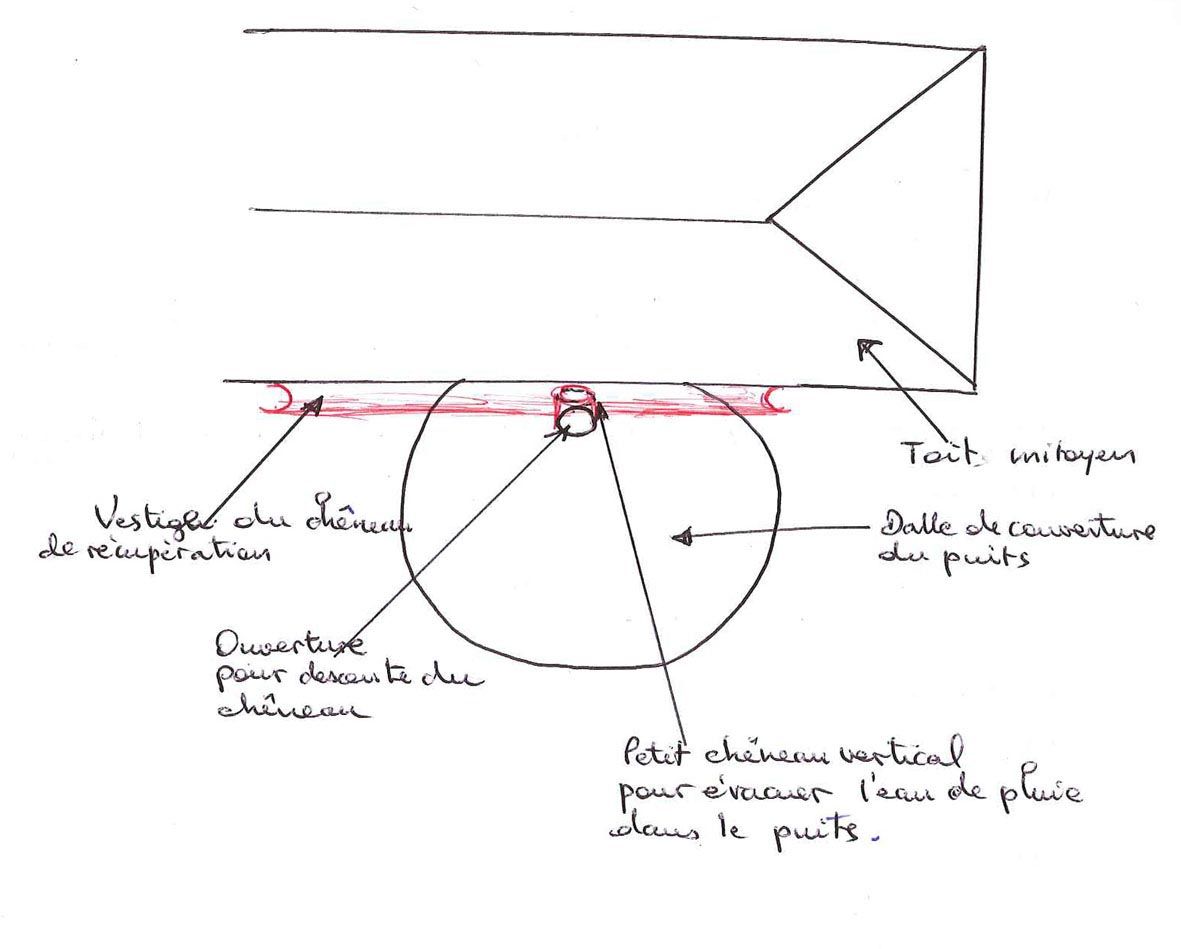 Toit mitoyen
Vestige du chêneau
de récupération
Dalle de couverture
du puits
Ouverture
pour descente du
chêneau
Petit chêneau vertical
pour évacuer l'eau de pluie
dans le puits.